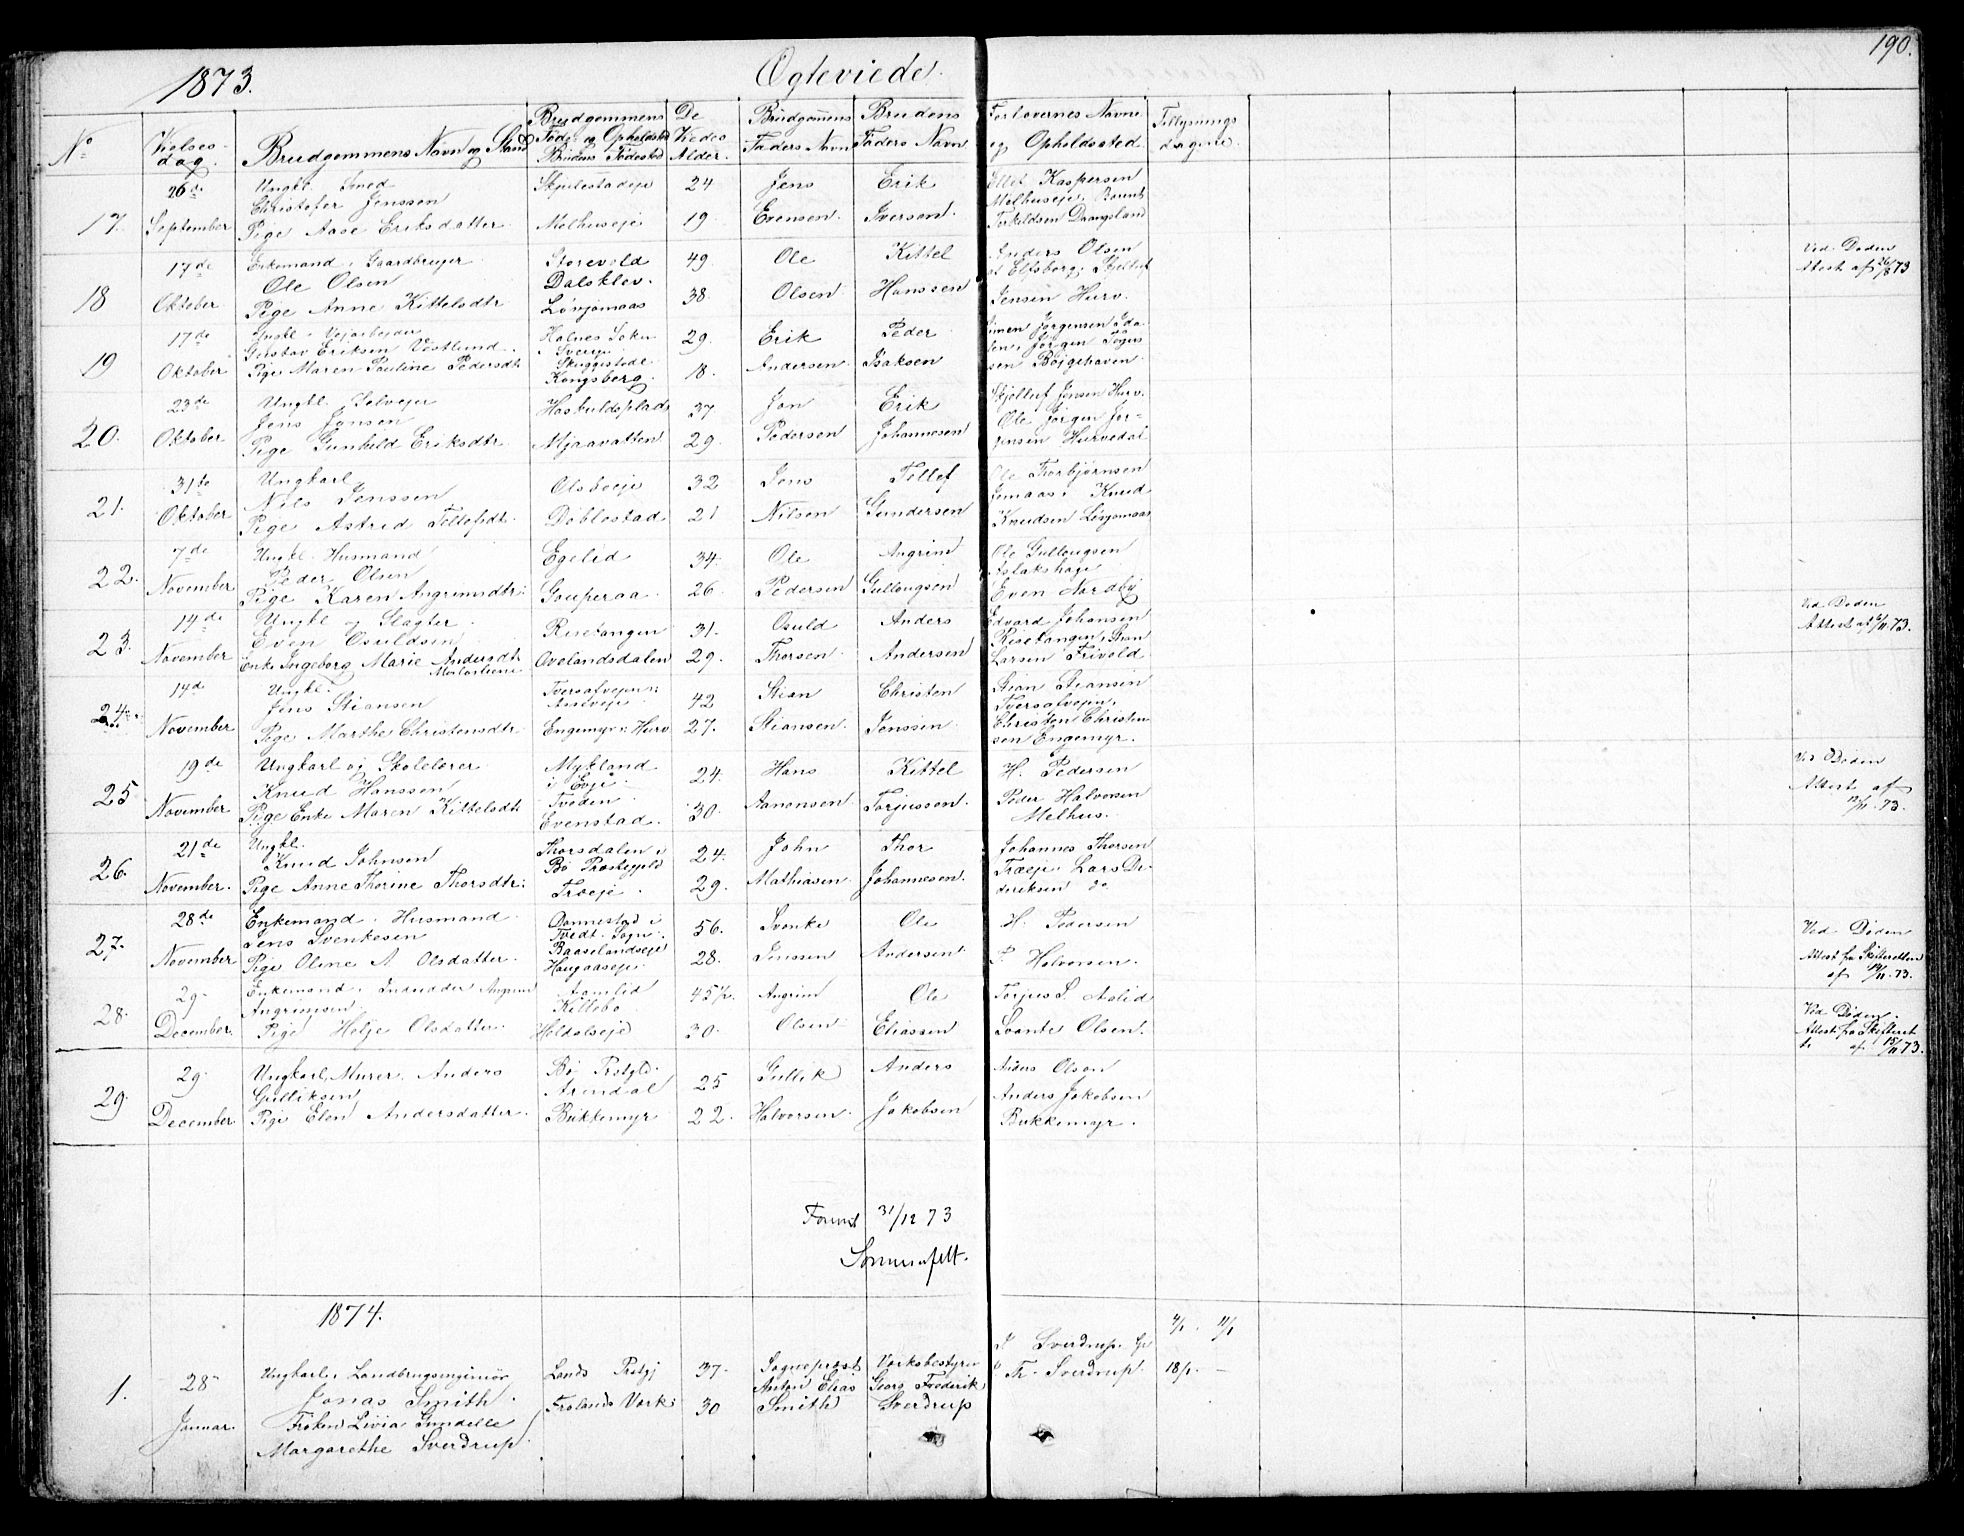 190.
1873. Ægteviede.
No
Vielses-
dag.
Brudgommens Navn og Stand
Brudgommens
Føde- og Opholdsted
Brudens Fødested
De
Viedes
Alder.
Brudgommens
Faders Navn
Brudens
Faders Navn
Forlovernes Navne
og Opholdssted
Tillysnings
dagene.
17. 26de September
Ungkl. Smed
Christofer Jenssen
Pige Aase Eriksdatter
Melhuseje
24
19
Jens
Evensen
Erik
Iversen
Kaspersen
Melhuseje
18 17de Oktober
Enkemand, Gaardbruger
Ole Olsen
Pige Anne Kittelsdtr
Storevold
Dalsklev.
Løvjomaas
49
38
Ole
Olsen
Kittel
Hanssen
Anders Olsen
Jensen Hurv.
Ved. Døden
Attest af 26/8 73
19 17de Oktober
Gustav Eriksen Vestlund
Pige Maren Pauline Pedersdtr
Holnes Sokn
i Sverige
Skuggestode
Kongsberg.
29.
18.
Erik
Andersen
Peder
Isaksen
Simen Jørgensen
20. 23de Oktober
Ungkl. Selvejer
Jens Jensen
Pige Gunhild Eriksdtr
Mjaavatten
37
29.
Jon
Pedersen
Erik
Johannesen
Skjelluf Jensen Hurv.
Ole Jørgen Jør-
gensen Hurvedal
21. 31te Oktober
Ungkarl
Nils Jenssen
Pige Astrid Tellefsdtr
Olsbueje
Døblostad
32
21
Jens
Nilsen
Tellef
Gundersen
Ole Thorbjørnsen
Knud
Knudsen Løvjomaas
22. 7de November
Ungkl. Husmand
Peder Olsen
Pige Karen Angrimsdtr:
Egelid
Gouperaa
34.
26
Ole
Pedersen
Angrim
Gullougsen
Ole Gullougsen
Aslakshage
Even Nordby
23. 14de November
Ungkl og Slagter
Even Osuldsen
Enke Ingeborg Marie Andersdtr
Risetangen
Ovelandsdalen
31.
29.
Osuld
Thorsen
Anders
Andersen
Edvard Johansen
Risetangen, Stian
Larsen Frivold
Ved. Døden
Attest af 6/11. 73.
24. 14de November
Ungkl.
Jens Stiansen
Pige Marthe Christensdtr
Engemyr i Hurv
42
27.
Stian
Stiansen
Christen
Jenssen
Stian Stiansen
Christen Christen
sen Engemyr.
25 19de November
Ungkarl og Skolelærer
Knud Hanssen
Pige Enke Maren Kittelsdtr
Mykland
i Evje
Tveden
Evenstad.
24.
30.
Hans
Aanensen
Kittel
Torjussen.
H. Pedersen
Peder Halvorsen
Melhus.
Ved. Døden
Attest af
12/11. 73.
26. 21de November.
Ungkl.
Knud Johnsen
Pige Anne Thorine Thorsdtr:
Thorsdalen i
Bø Præstegjeld
Træeje
24.
29.
John
Mathiasen
Thor
Johannesen.
Johannes Thorsen
Træeje, Lars Di-
deriksen do
27. 28de November
Enkemand, Husmand
Jens Svenkesen
Pige Oline A. Olsdatter
Tvedt Sogn.
Baaselandseje
Haugaaseje
56.
28.
Svenke
Jenssen
Ole
Andersen.
H. Pedersen
P. Halvorsen.
Ved Døden
Attest fra Skifteretten
af 14/11. 73.
28. 29 December.
Enkemand, Angrim
Angrimsen
Pige Helje Olsdatter
Aamlid
Kittebo
Heldalseje
45½
30.
Angrim
Olsen
Ole
Eliassen
Torjus S. Aslid
Svante Olsen.
Ved Døden.
Attest fra Skifteret
t. af 15/11 73.
29. 29 December
Ungkarl, Murer, Anders
Gulliksen
Pige Elen Andersdatter.
Bø Prstgld.
Arendal
Bukkemyr
25
22.
Gullik
Halvorsen
Anders
Jakobsen
Anders Olsen
Anders Jakobsen
Bukkemyr.
31/12 73
Sommerfelt.
1874.
1. 28 Januar.
Ungkarl, Landbrugsingeniør
Jonas Smith.
Frøken Livia Gundelle
Margarethe Sverdrup.
Lands Prstgj
Frolands Værk
37.
30
Sogneprest
Anton Elias
Smith
Værksbestyrer
Georg Frederik
Sverdrup
Sverdrup.
Th. Sverdrup.
4/1. 11/1
18/1. —